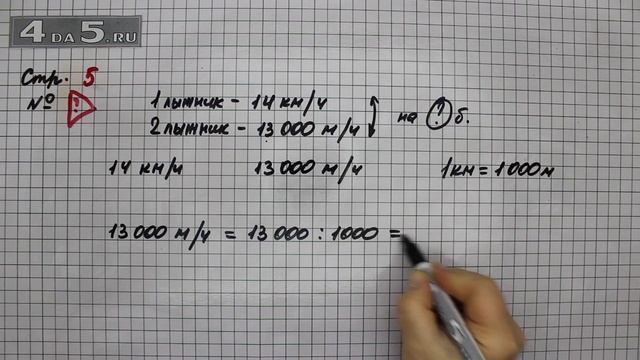 4DA5.RU
Стр. 5
№ ?
1 лыжник - 14 км/ч
2 лыжник - 13 000 м/ч
на ? б.
14 км/ч 13 000 м/ч 1 км = 1 000 м
13 000 м/ч = 13 000 : 1000 =